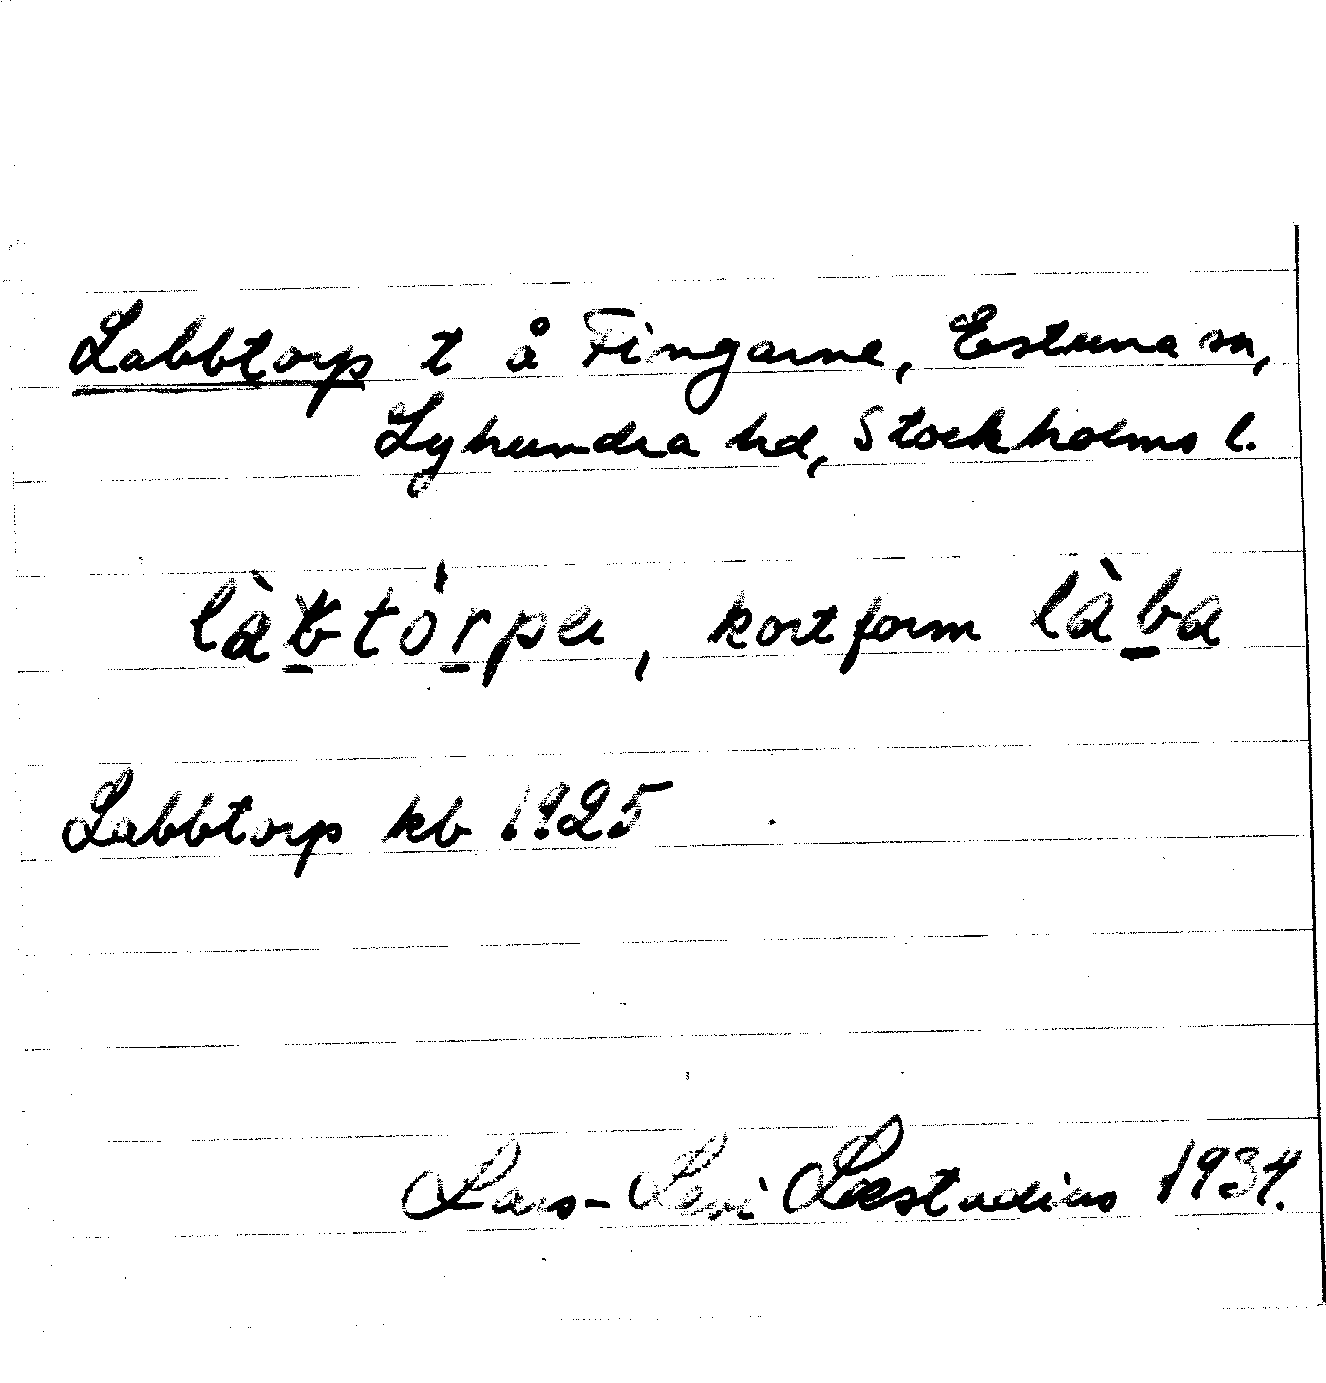 Labbtorp t å Fingarne, Estuna sn,
Lyhundra hd, Stockholms l.
kortform làba
Labbtorp kb 1925
Lars-Levi Læstadius 1934.